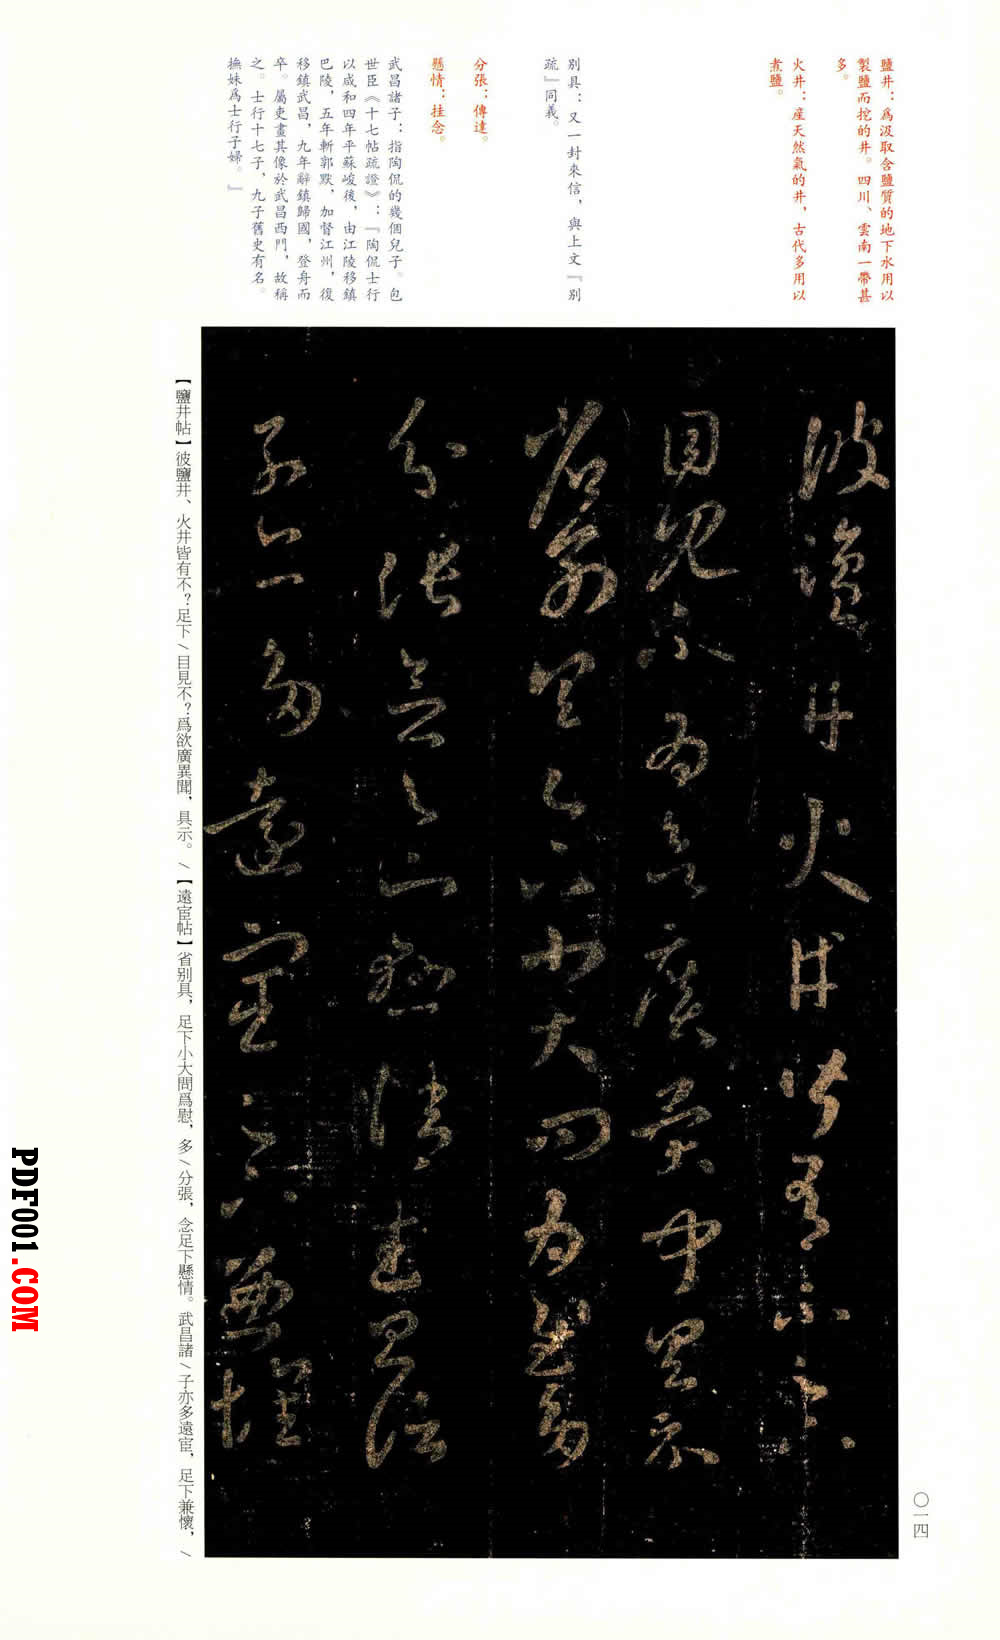 鹽井：爲汲取含鹽質的地下水用以
製鹽而挖的井。四川、雲南一帶甚
多。
火井：産天然氣的井，古代多用以
煮鹽。
別具：又一封來信，與上文『別
疏』同義。
分張：傳達。
懸情：挂念。
武昌諸子：指陶侃的幾個兒子。包
世臣《十七帖疏證》：『陶侃士行
以咸和四年平蘇峻後，由江陵移鎮
巴陵，五年斬郭默，加督江州，復
移鎮武昌，九年辭鎮歸國，登舟而
卒。屬吏畫其像於武昌西門，故稱
之。士行十七子，九子舊史有名。
撫妹爲士行子婦。』
彼鹽井火井皆有不足下
目見不爲欲廣異聞具示
省別具足下小大問爲慰多
分張念足下懸情武昌諸
子亦多遠宦足下兼懷
【鹽井帖】彼鹽井、火井皆有不？足下/目見不？爲欲廣異聞，具示。/【遠宦帖】省别具，足下小大問爲慰，多/分張，念足下懸情。武昌諸/子亦多遠宦，足下兼懷，/
〇一四
PDF001.COM